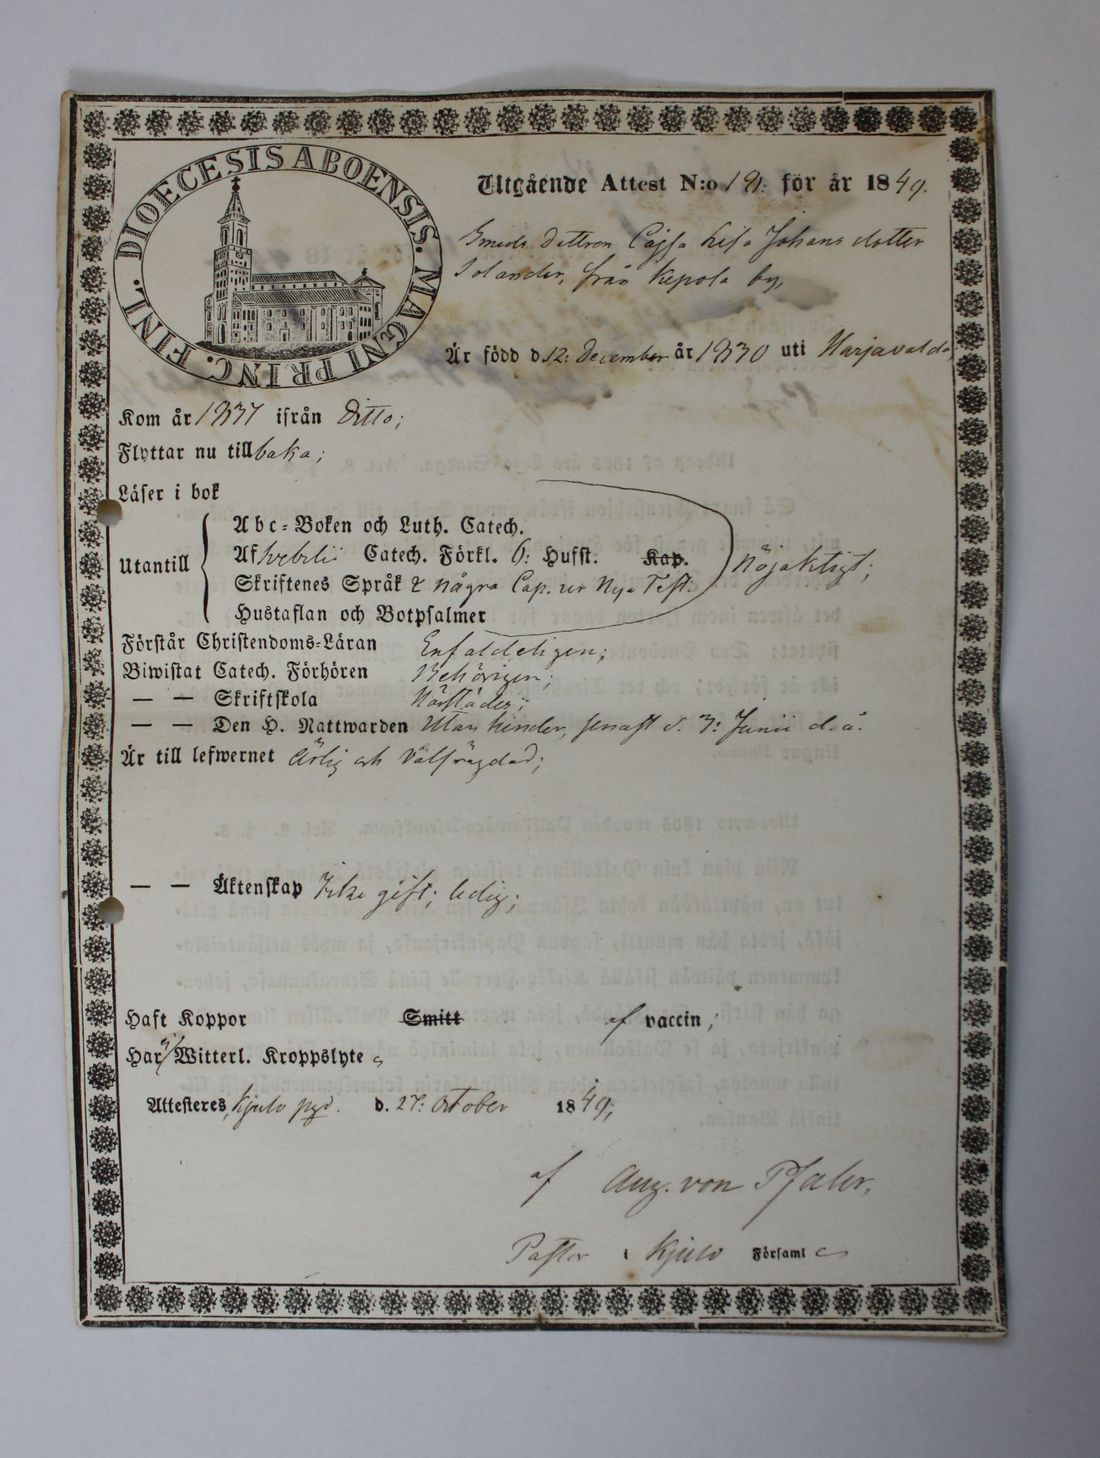 DIOECESIS ABOENSIS. MAGNI PRINC. FINL.
Utgående Attest N:o 191. för år 1849.
Smeds dottren Cajsa Lisa Johansdotter
Solander, från Kepola by,
Är född d. 12: December år 1830 uti Harjavalda
Kom år 1837 ifrån Ditto;
Flyttar nu till baka;
Läser i bok
Utantill
Abc-Boken och Luth. Catech.
Af Svebelii Catech. Förkl. 6: Hufst. Kap.
Skriftenes Språk & några Cap. ur Nya Test.
Hustaflan och Botpsalmer
Nöjaktigt;
Förstår Christendoms-Läran Enfaldeligen;
Biwistat Catech. Förhören Behörigen;
— — Skriftskola
— — Den H. Nattwarden Utan hinder, senast d. 3: Junii d. å.
Är till lefwernet Ärlig och Välfrägdad;
— — Äktenskap Icke gift; ledig;
Haft Koppor Smitt af vaccin;
Har Witterl. Kroppslyte
Attesteres, Kjulo pgd. d. 27: October 1849;
af Aug. von Pfaler,
Pastor i Kjulo Församl